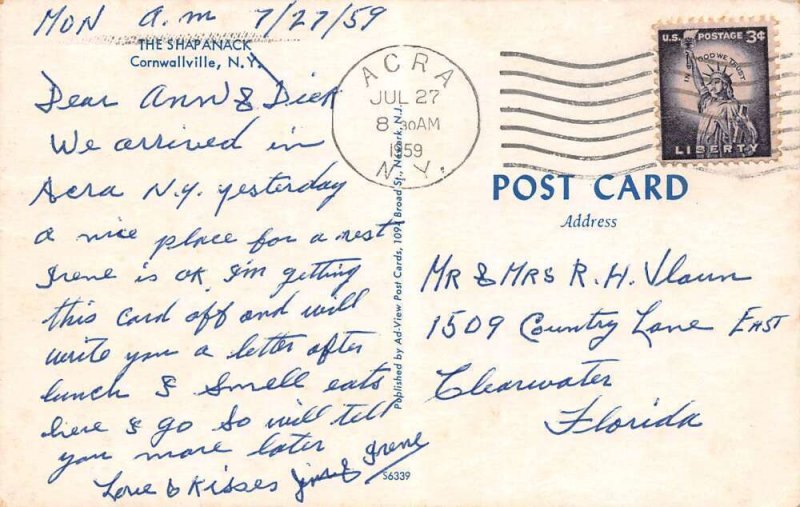 MON a.m 7/27/59
THE SHAPANACK
Cornwallville, N.Y.
Dear Ann & Dick
We arrived in
Acra N.Y. yesterday
a nice place for a rest
Irene is OK, I'm getting
this card off and will
write you a letter after
lunch I smell eats
here & go so will tell
you more later
Love & Kisses & Irene
S6339
Published by Ad-View Post Cards, 1091 Broad St., Newark, N.J.
ACRA
JUL 27
8 30 AM
1959
N.Y.
U.S. POSTAGE 3¢
IN GOD WE TRUST
LIBERTY
POST CARD
Address
MR & MRS R. H.
1509 Country Lane EAST
Clearwater
Florida